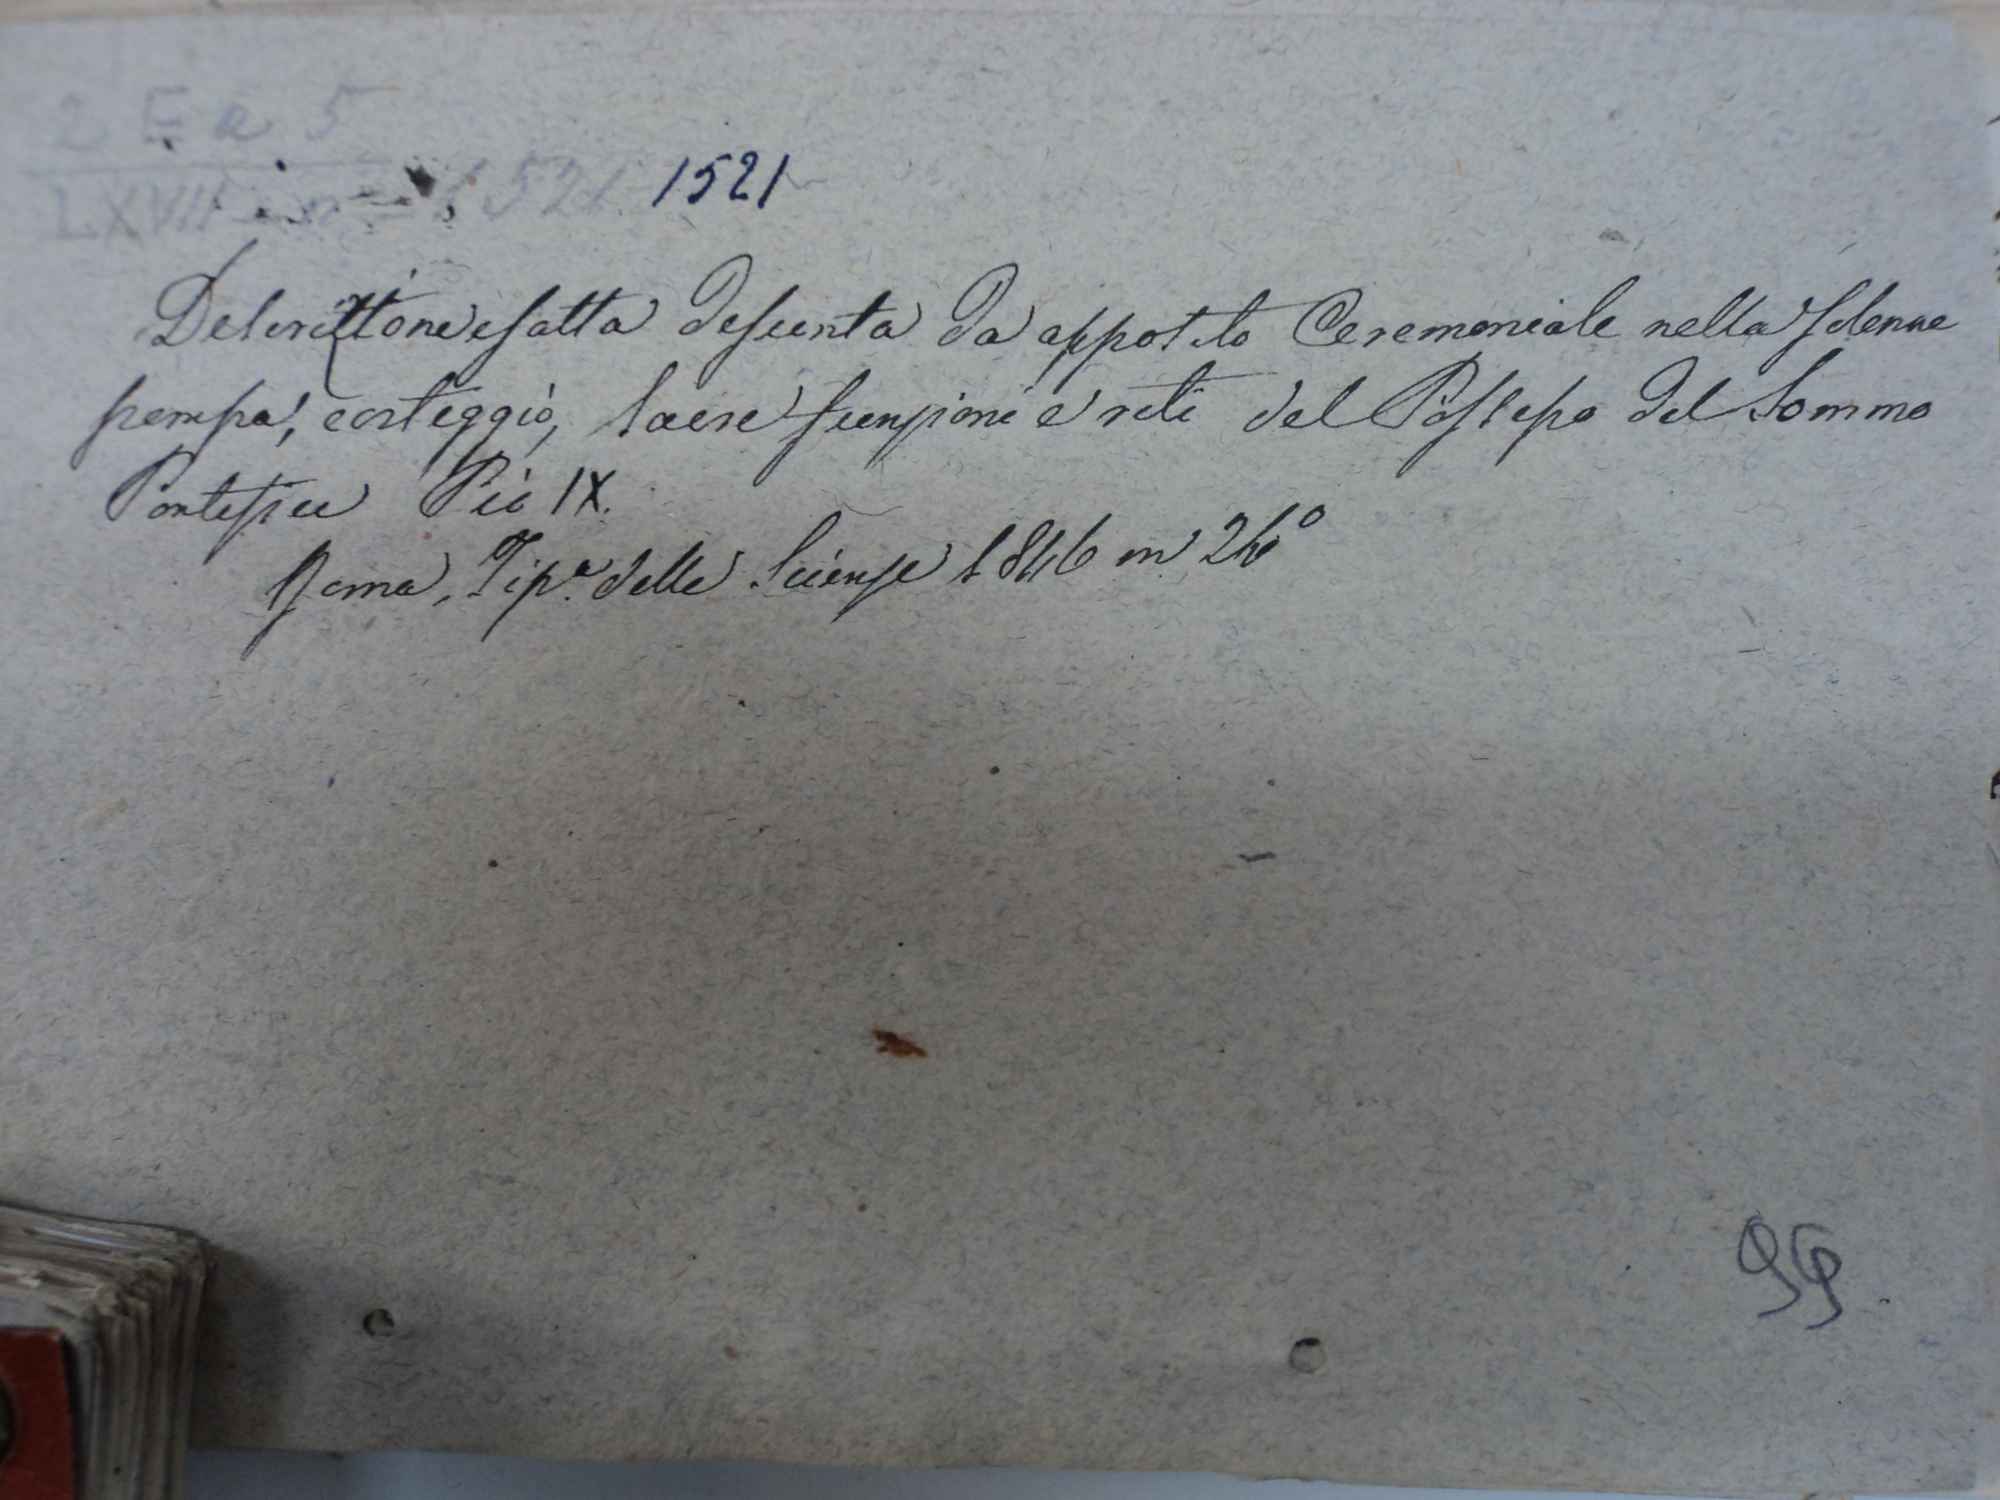 2 E a 5
LXVII 1521 1521
Descrizione esatta desunta da apposito Ceremoniale nella solenne
pompa, corteggio, sacre funzioni e riti del Possesso del Sommo
Pontefice Pio IX.
Roma, Tip.ª delle Scienze 1846 in 24º